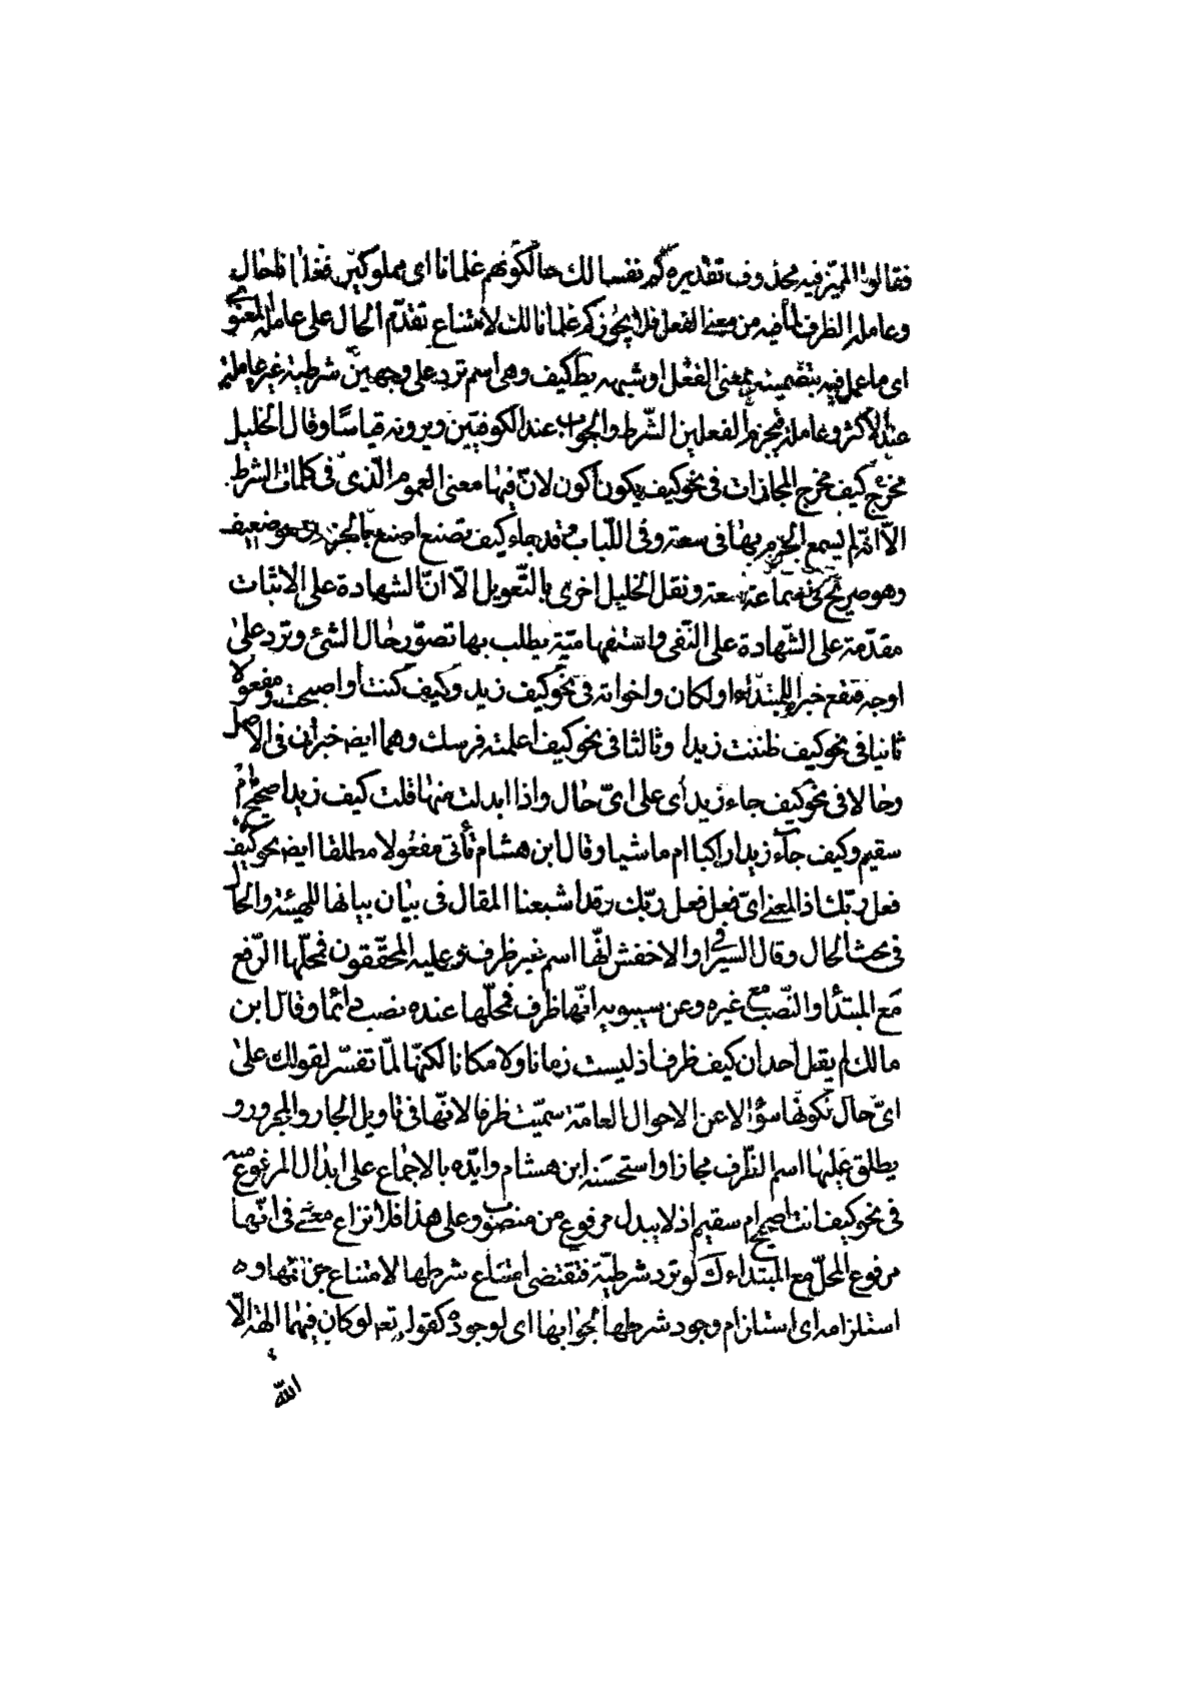 فقالوا المميّز فيه محذوف تقديره كم نفسا لك حالكونهم غلمانا اى مملوكين فغلمانا حال
وعامله الظرف لما فيه من معنى الفعل فلا يجوز كم غلمانا لك لامتناع تقدّم الحال على عامله المعنوى
اى ما عمل فيه بتضمينه معنى الفعل او شبهه كيف وهى اسم ترد على وجهين شرطية غير عاملة
عند الاكثر وعاملة فيجزم الفعلين الشّرط والجواب عند الكوفيّين ويرونه قياسًا وقال الخليل
مخرج كيف مخرج المجازات فى نحو كيف يكون أكون لانّ فيها معنى العموم الّذى فى كلمات الشرط
الّا انّه لم يسمع الجزم بها فى سعة وفى اللّباب قد جاء كيف تصنع اصنع بالجزم وهو ضعيف
وهو صريح فى سعة ونقل الخليل اخرى بالتّعويل الّا انّ الشهادة على الاثبات
مقدّمة على الشّهادة على النّفى واستفهاميّة يطلب بها تصوّر حال الشئ وترد على
اوجه فتقع خبرا للمبتداء او لكان واخواته فى نحو كيف زيد وكيف كنت او اصبحت ومفعولا
ثانيا فى نحو كيف ظننت زيدا وثالثا فى نحو كيف اعلمته فرسك وهما ايضا خبران فى الاصل
وحالا فى نحو كيف جاء زيد أى على اىّ حال واذا ابدلت منها قلت كيف زيد اصحيح ام
سقيم وكيف جآء زيد اراكبا ام ماشيا وقال ابن هشام تأتى مفعولا مطلقا ايضا نحو كيف
فعل ربّك اذ المعنى اىّ فعل فعل ربّك وقد اشبعنا المقال فى بيان بيانها للهيئة والحال
فى بحث الحال وقال السيرافى والاخفش انّها اسم غير ظرف وعليه المحقّقون فمحلّها الرّفع
مع المبتدأ والنّصب مع غيره وعن سيبويه أنّها ظرف فمحلّها عنده نصب دائما وقال ابن
مالك لم يقل أحد ان كيف ظرف اذ ليست زمانا ولا مكانا لكنّها لمّا تفسّر لقولك على
اىّ حال لكونها سؤالا عن الاحوال العامّة سميّت ظرفا لانّها فى تاويل الجار والمجرور و
يطلق عليها اسم الظّرف مجازا واستحسنه ابن هشام وايّده بالاجماع على ابدال المرفوع منه
فى نحو كيف انت اصحيح ام سقيم اذ لا يبدل مرفوع من منصوب وعلى هذا فلا نزاع معنى فى انّها
مرفوع المحلّ مع المبتداء لو ترد شرطيّة فتقتضى امتناع شرطها لامتناع جزائها و
استلزامه اى استلزام وجود شرطها لجوابها اى لوجوده كقوله تعه لو كان فيهما الهة الّا
اللّه